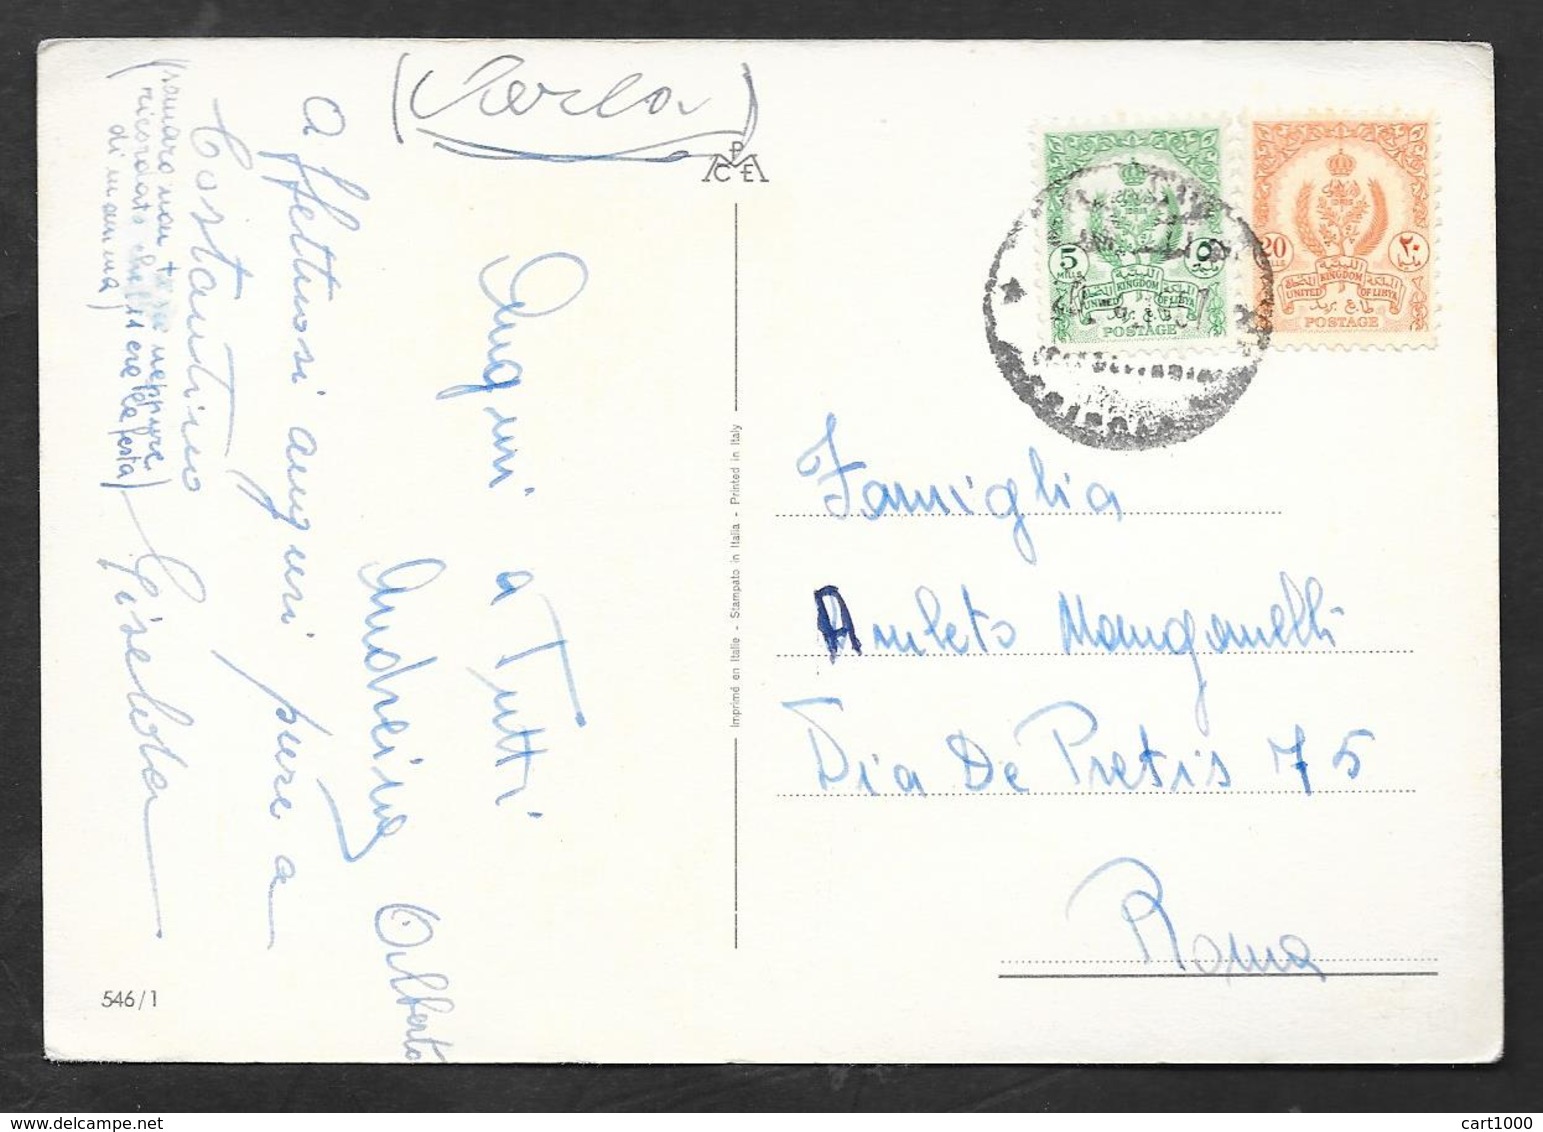 (Carla)
CPEA
Auguri a Tutti
Andreina Alberto
affettuosi auguri pure a
Costantino Giselda
(somaro non
neppure
ricordato
era la festa)
di mamma)
Imprimé en Italie - Stampato in Italia - Printed in Italy
546/1
5
MILLS
UNITED KINGDOM OF LIBYA
POSTAGE
20
MILLS
٢٠
UNITED KINGDOM OF LIBYA
POSTAGE
Famiglia
Amleto Manganelli
Via De Pretis 75
Roma
www.delcampe.net
cart1000